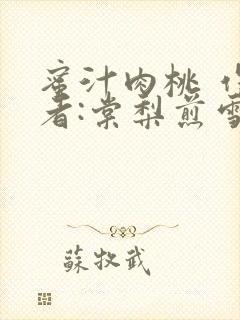 蜜汁肉桃 作
者:棠梨煎雪
蘇牧武